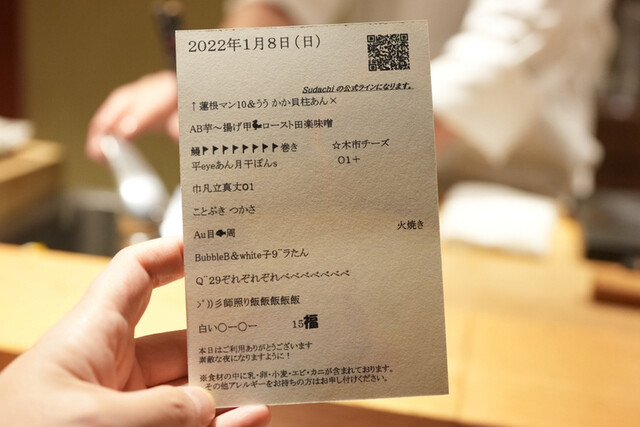 2022年1月8日(日)
Sudachi の公式ラインになります。
↑蓮根マン10&うう かか貝柱あん×
AB芋〜揚げ甲🦆ロースト田楽味噌
鰻🏴🏴🏴🏴🏴🏴🏴🏴巻き ☆木市チーズ
平eyeあん月干ぽんs 〇1+
巾凡立真丈〇1
ことぶき つかさ
Au目🐟周 火焼き
BubbleB&white子9¨ラたん
Q¨29ぞれぞれぞれぺぺぺぺぺぺぺ
>゚))彡師照り飯飯飯飯飯
白い〇ー〇ー 15福
本日はご利用ありがとうございます
素敵な夜になりますように!
※食材の中に乳・卵・小麦・エビ・カニが含まれております。
その他アレルギーをお持ちの方はお申し付けください。